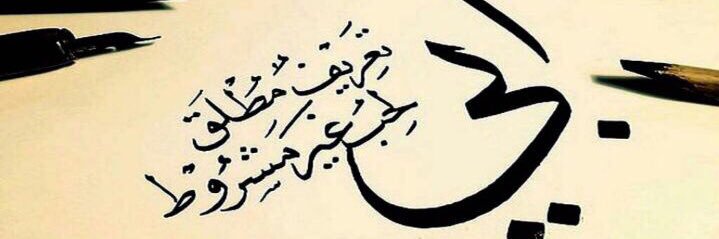 أبي
تَعريف مُطْلَق
لِحُب غَير مَشْرُوط